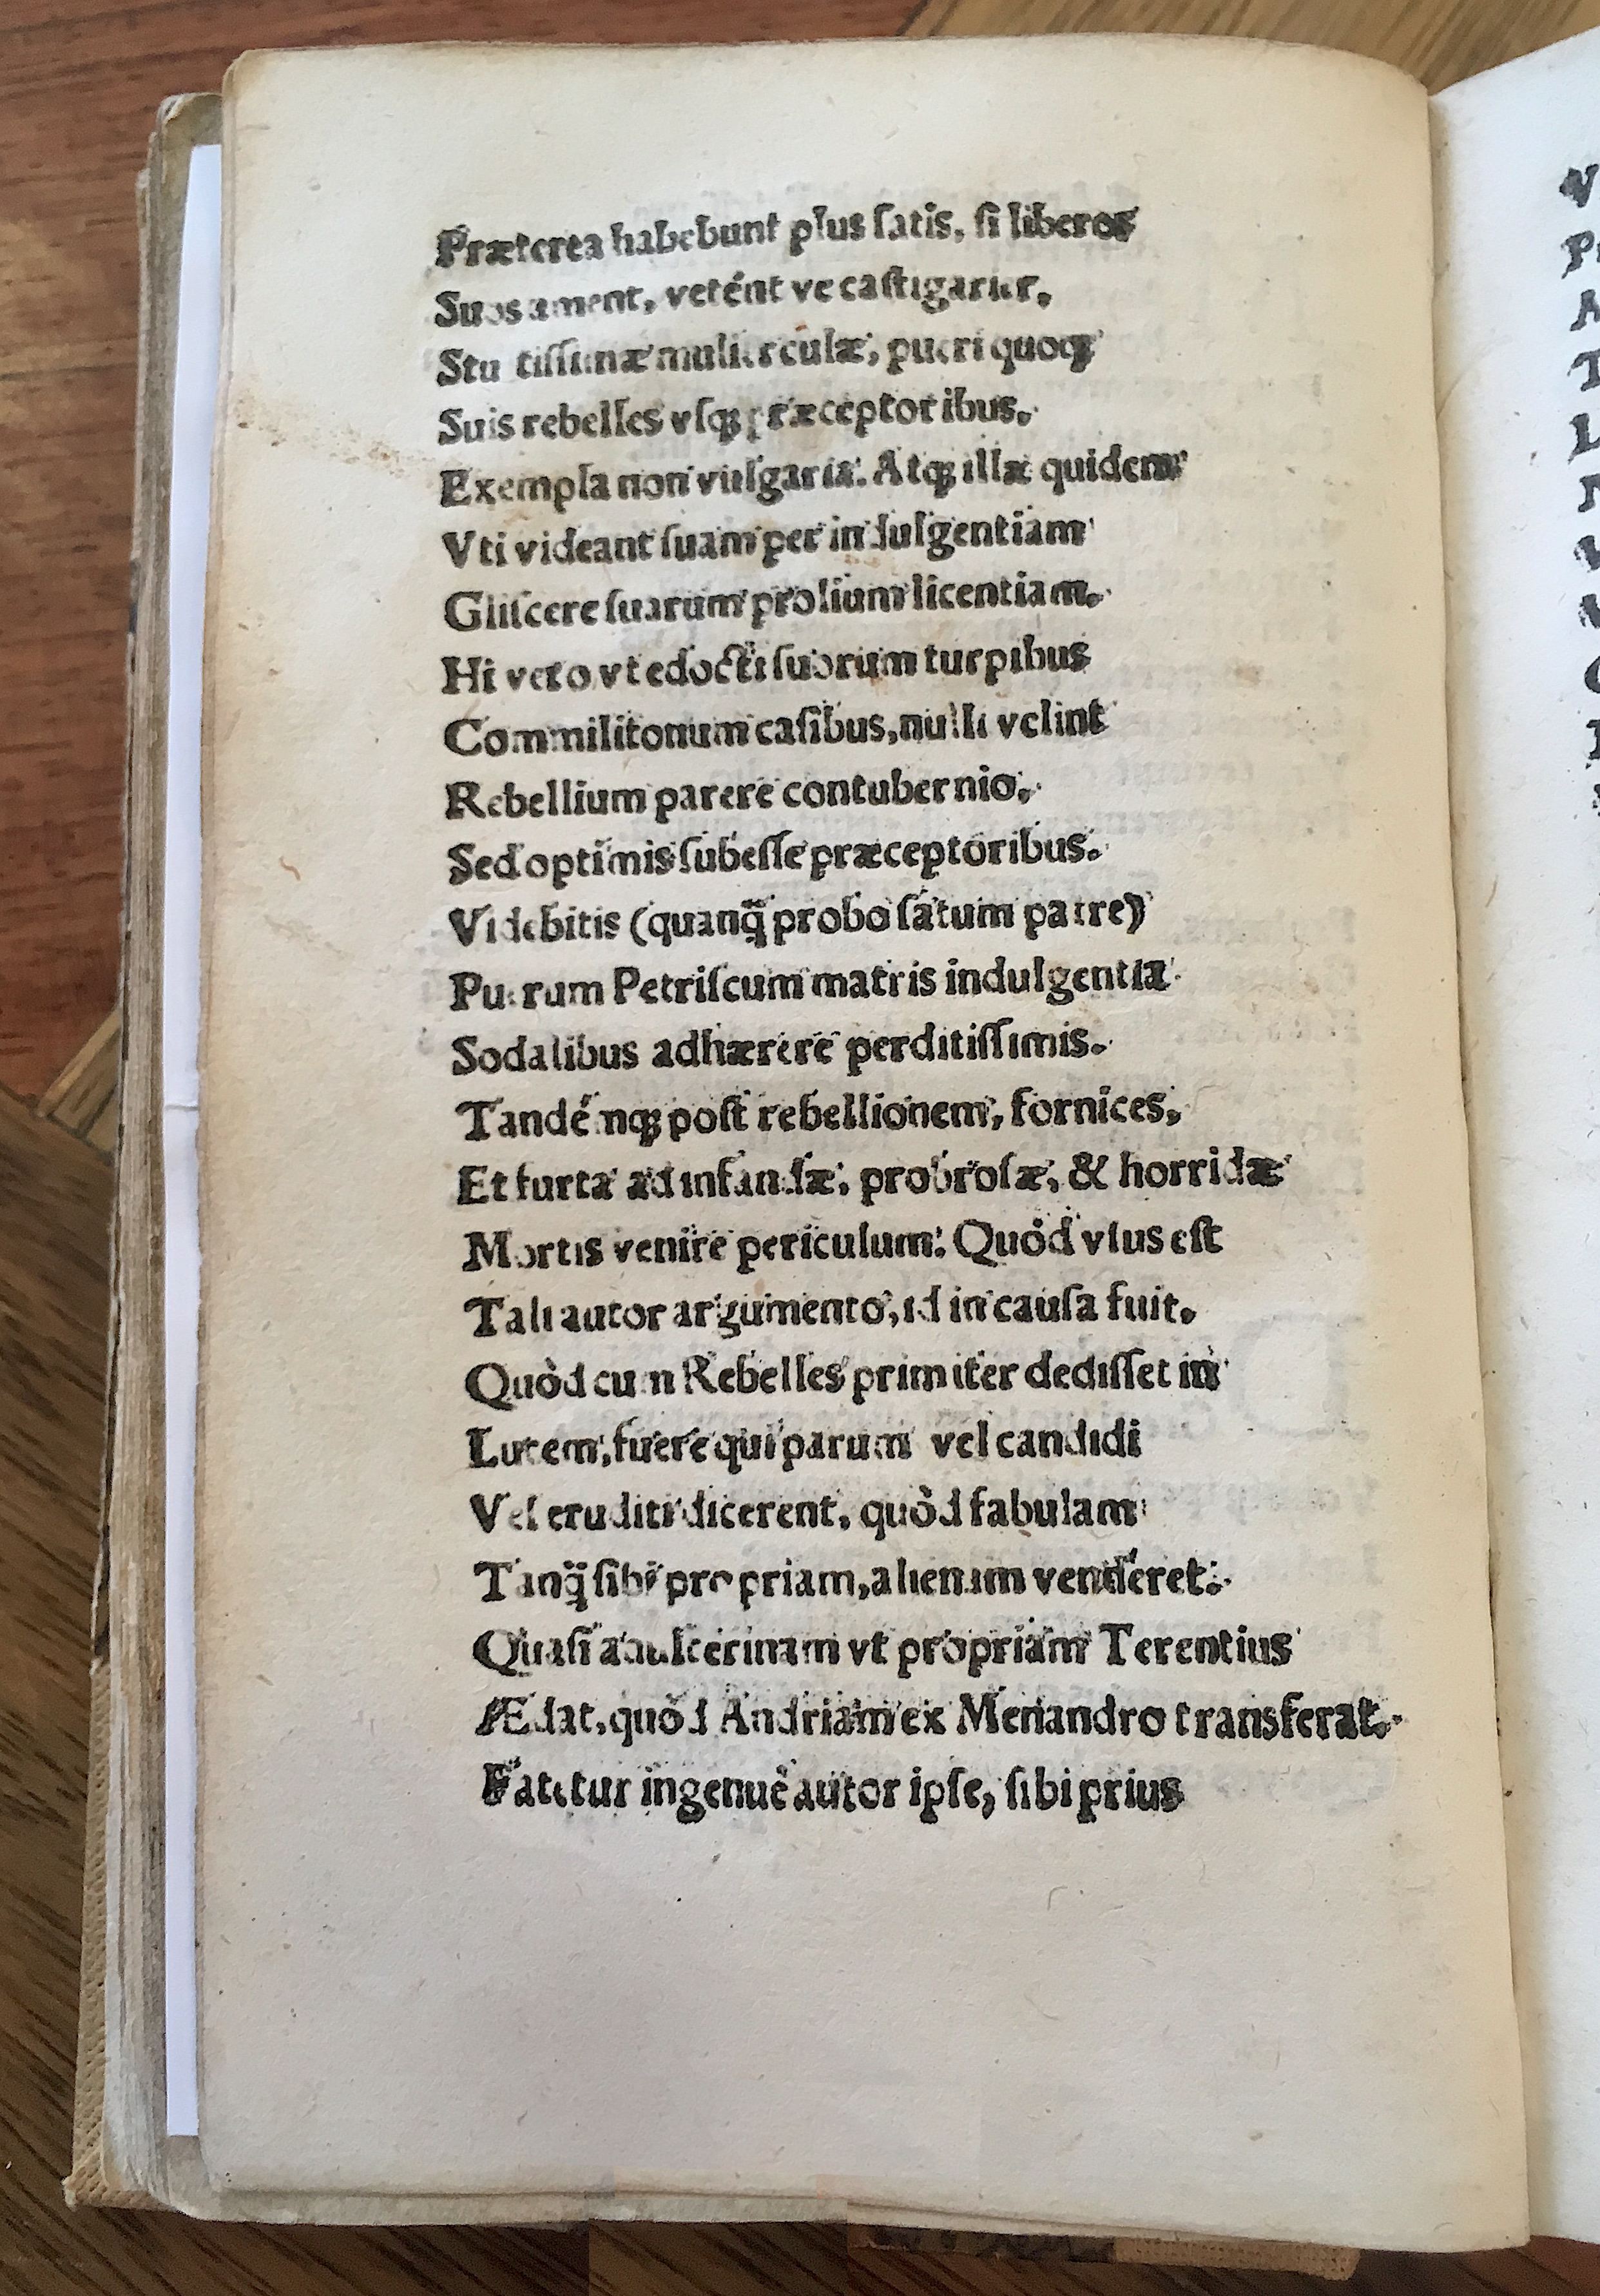 Præterea habebunt plus ſatis, ſi liberos
Suos ament, vetént ve caſtigarier,
Stultiſſimæ mulierculæ, pueri quoqꝫ
Suis rebelles vſqꝫ præceptoribus.
Exempla non vulgaria. Atqꝫ illæ quidem
Vti videant ſuam per indulgentiam
Gliſcere ſuarum prolium licentiam.
Hi vero vt edocti ſuorum turpibus
Commilitonum caſibus, nulli velint
Rebellium parere contubernio.
Sed optimis ſubeſſe præceptoribus.
Videbitis (quanq̃ probo ſatum patre)
Puerum Petriſcum matris indulgentia
Sodalibus adhærere perditiſſimis.
Tandémqꝫ poſt rebellionem, fornices,
Et furta ad infandæ, probroſæ, & horridæ
Mortis venire periculum. Quòd vſus eſt
Tali autor argumento, id in cauſa fuit.
Quòd cum Rebelles primiter dediſſet in
Lucem, fuere qui parum vel candidi
Vel eruditi dicerent, quòd fabulam
Tanq̃ ſibi propriam, alienam venderet.
Quaſi vt propriam Terentius
Ædat, quòd Andriam ex Menandro transferat.
Fatetur ingenuè autor ipſe, ſibi prius